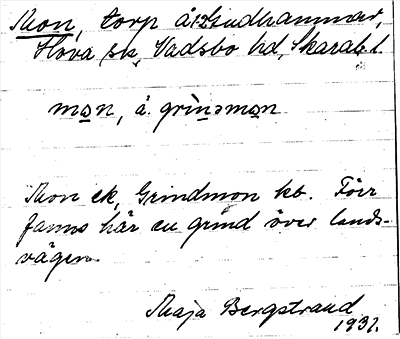 Mon, torp å Gudhammar,
Hova sn, Vadsbo hd, Skarab. l.
mon, å. grinsmon
Mon ek, Grindmon kb. Förr
fanns här en grind över lands-
vägen.
Maja Bergstrand
1931.